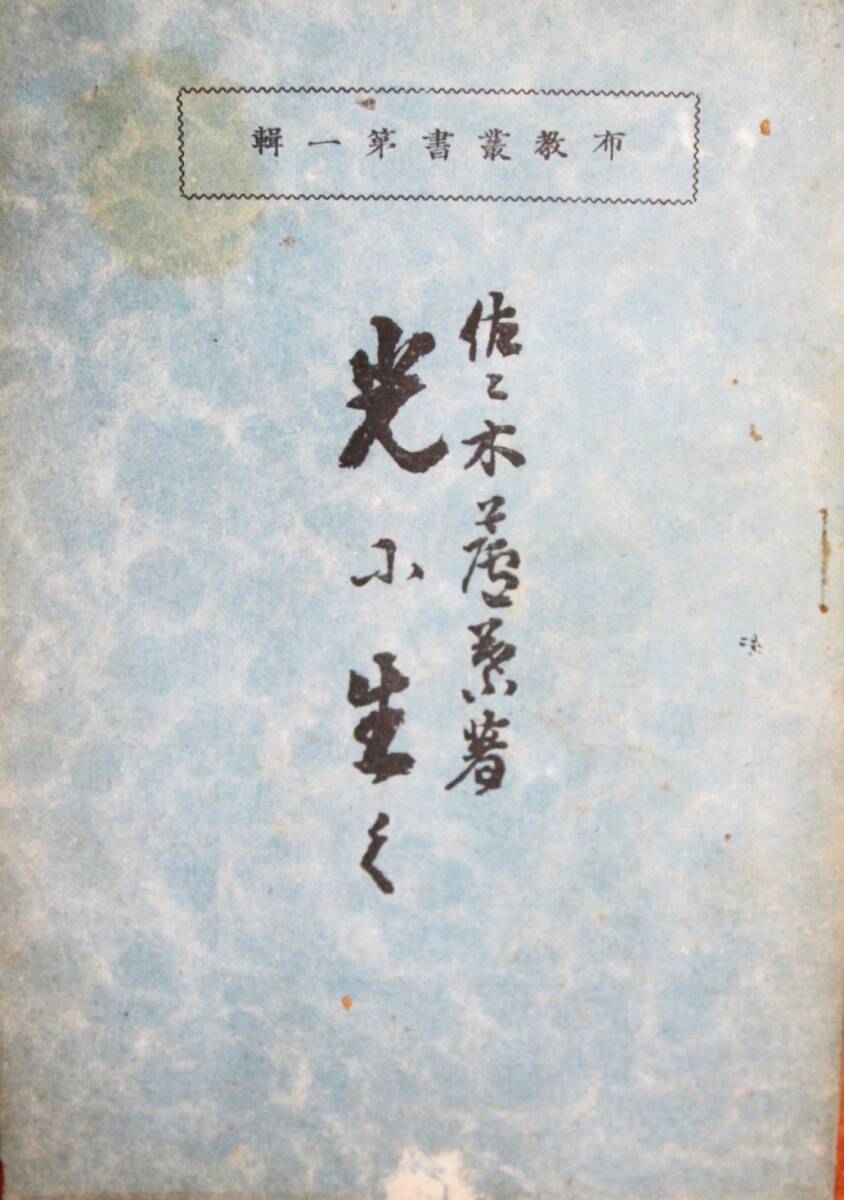 布教叢書第一輯
佐々木蘆著
光に生く